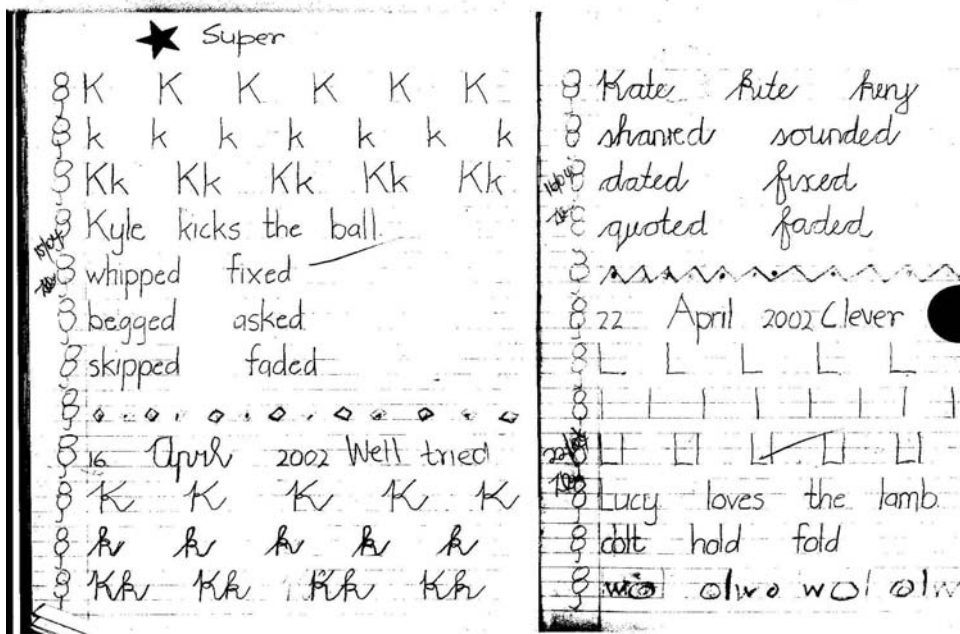 Super
K K K K K K
k k k k k k k
Kk Kk Kk Kk Kk
Kyle kicks the ball.
whipped fixed
begged asked
skipped faded
16 April 2002 Well tried
K K K K K
k k k k k
Kk Kk Kk Kk
Kate kite
sounded
dated fixed
quoted faded
22 April 2002 Clever
L L L L L
l l l l l l l
Ll Ll Ll Ll Ll
Lucy loves the lamb.
colt hold fold